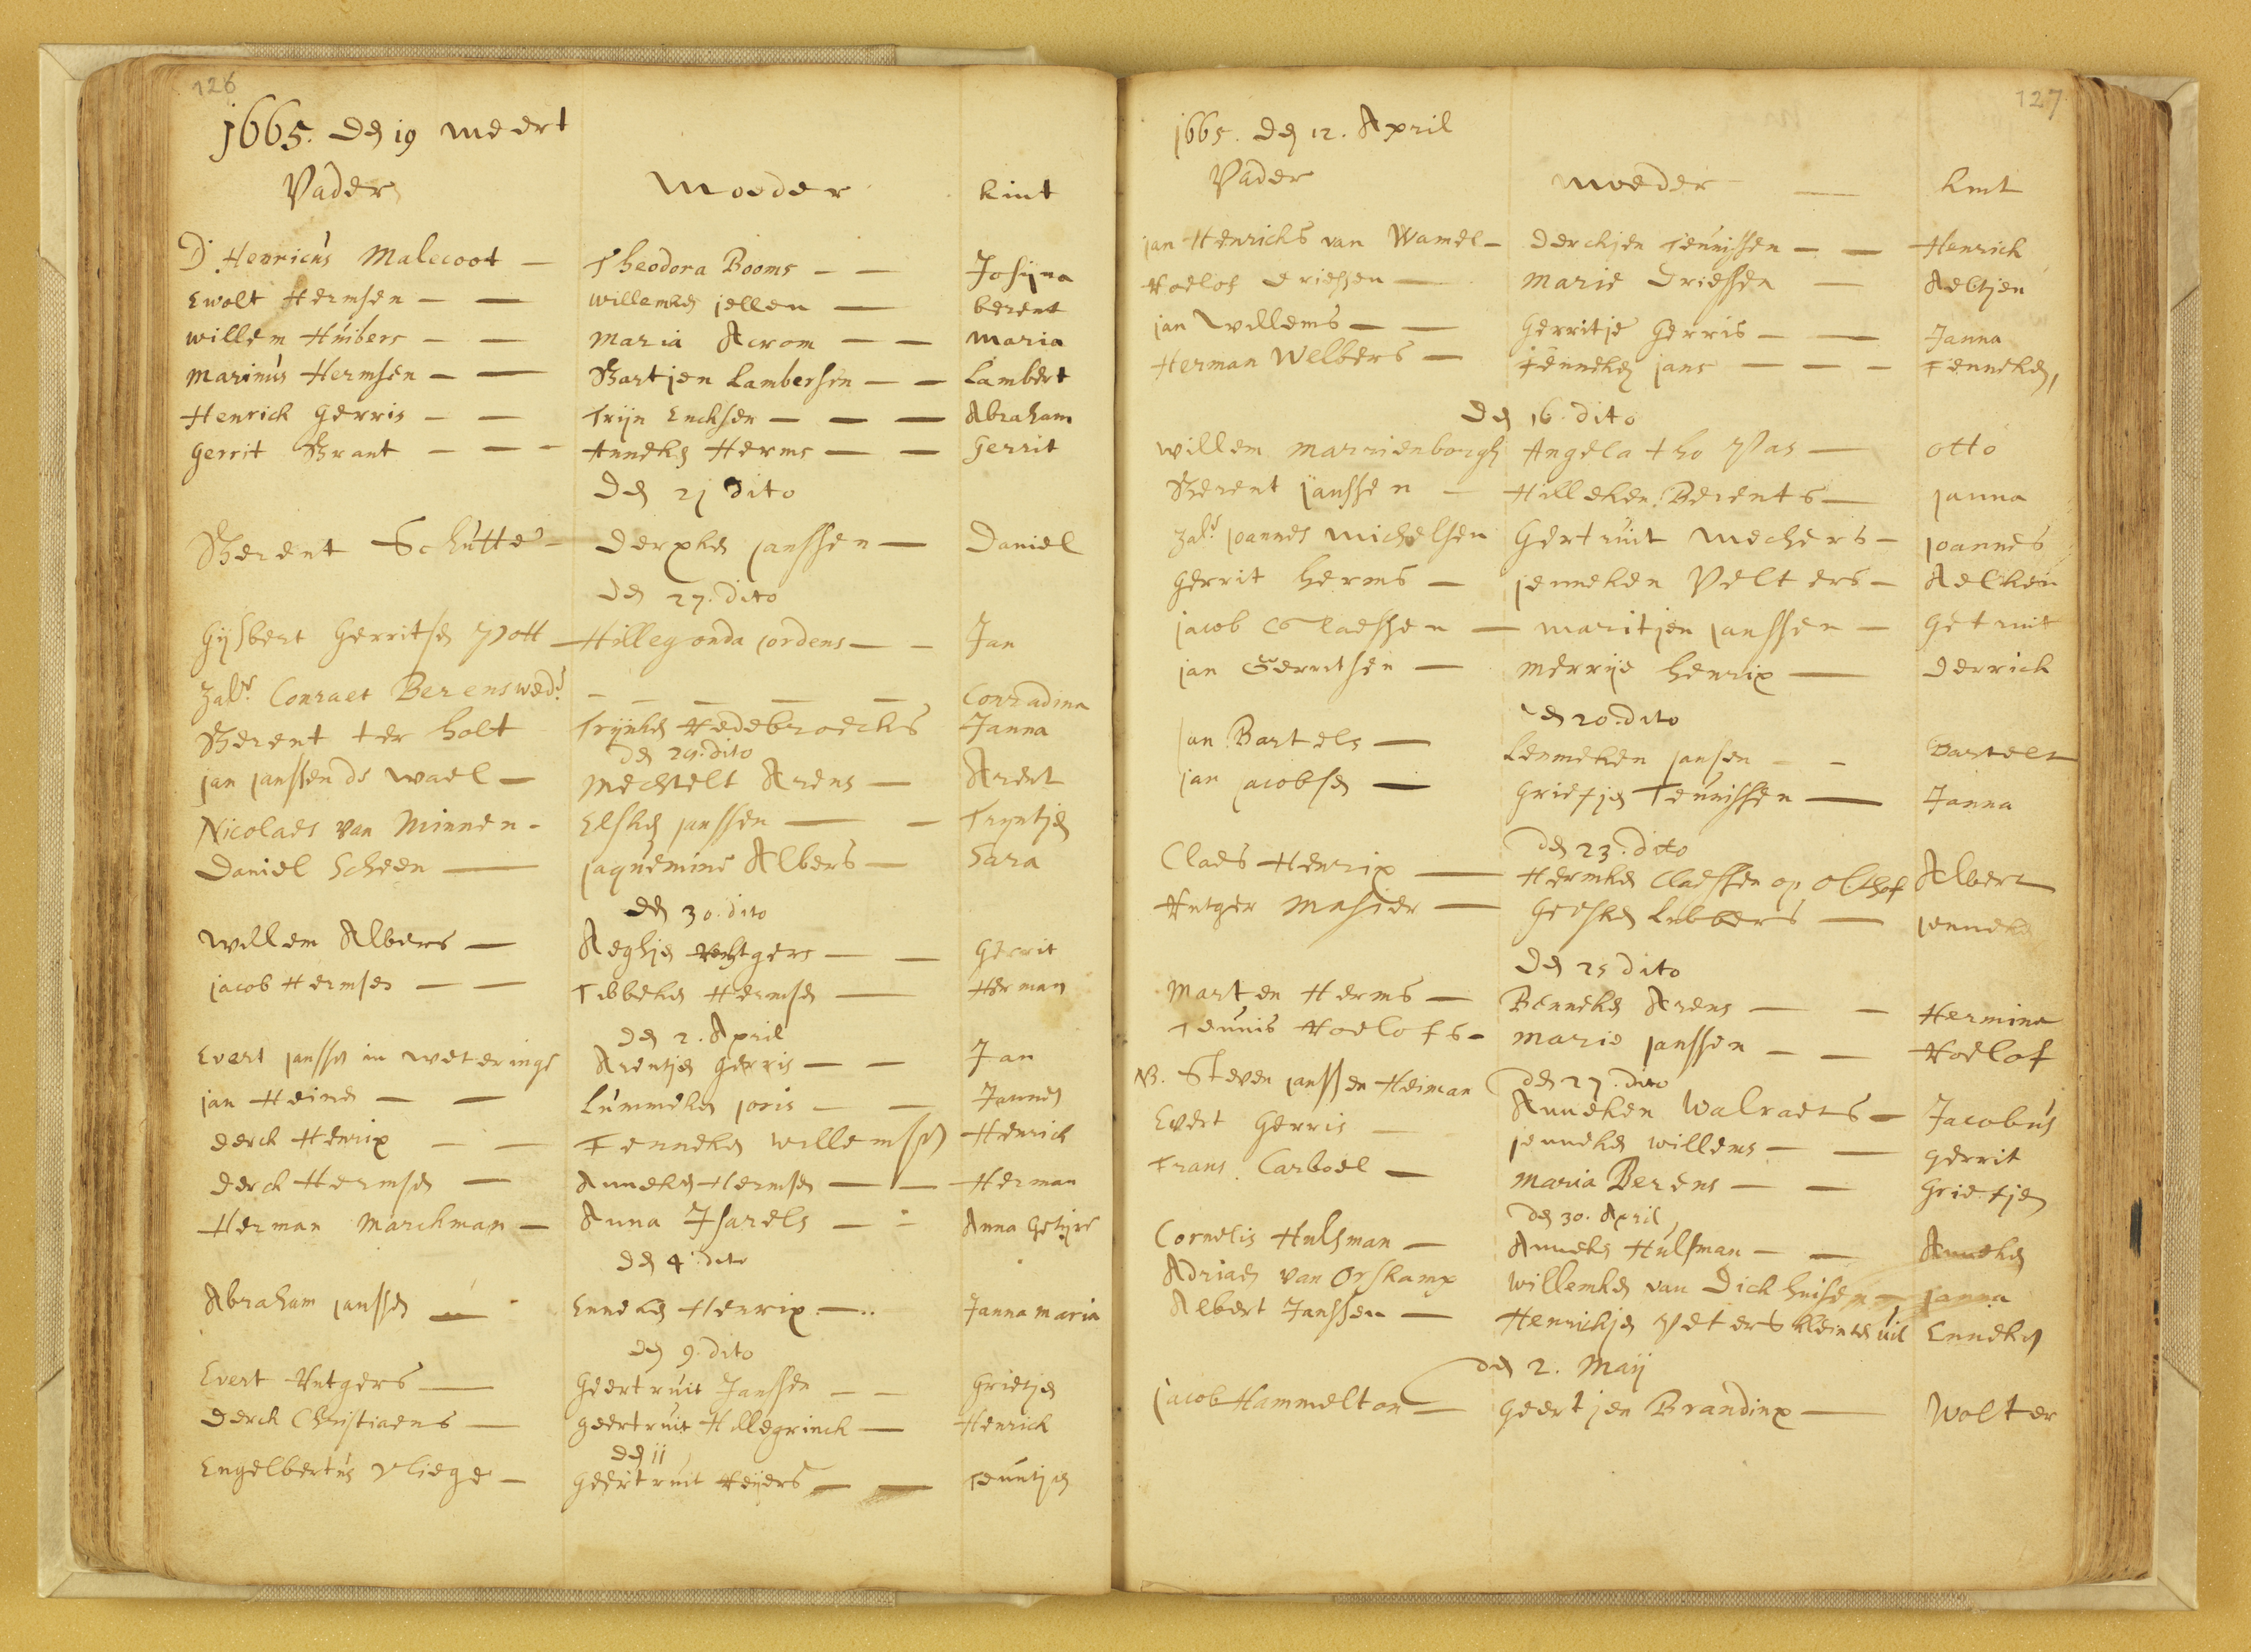 126
1665. den 19 meert
Vader Moeder kint
D. Henricus Malecoot — Theodora Booms — — Josijna
Ewolt Hermsen — — willemken jellen — berent
willem Huibers — — Maria Acrom — — Maria
Marinus Hermsen — — Bartjen Lambersen — — Lambert
Henrick Gerris — — Trijn Encksen — — — Abraham
Gerrit Brant — — — Anneken Herms — — Gerrit
Den 21 dito
Berent Schutte — Derxken janssen — Daniel
den 27. dito
Gijsbert Gerritsen Pott — Hillegonda Cordens — — Jan
Zalr. Conraet Berens wed. — — — — Conradina
Berent ter holt Trijnken Redebroecks Janna
den 29. dito
jan janssen de wael — Mechtelt Arens — Arent
Nicolaes van Minnen — Elsken janssen — — Tryntjen
Daniel Scheen — jaquemine Albers — Sara
den 30. dito
willem Albers — Aeghjen Rutgers — — Gerrit
jacob Hermsen — — Tibbeken Hermsen — Herman
den 2. April
Evert janssen in weteringe Arentjen Gerris — — Jan
jan Heinen — — Lummeken joris — — Jannes
derck Henrix — — Fenneken willemsen Henrick
derck Hermsen — Anneken Hermsen — — Herman
Herman Marckman — Anna Isarels — — Anna
den 4. dito
Abraham janssen — Enneken Henrix — Janna maria
den 9. dito
Evert Rutgers — Geertruit Janssen — — Grietjen
Derck Christiaens — geertruit Hillegrinck — Henrick
den 11
Engelbertus Vliege — Geertruit Reijers — — Teuntjen
127
1665. den 12. April
Vader moeder — kint
jan Henricks van Wamel — Derckjen Teunissen — — Henrick
Roelof Driessen — Marie Driessen — Aeltjen
jan willems — — Gerritje Gerris — — Janna
Herman Welbers — Fenneken jans — — — Fenneken,
Den 16. dito
willem Marrienborgh Angela tho Pas — otto
Berent janssen — Hilleken Berents — janna
Zalr. joannes Michelsen Gertruit Mechers — joannes
Gerrit herms — jenneken Velters — Aelken
jacob Claessen — maritjen janssen — Getruit
jan Gerritsen — Merrije henrix — Derrick
den 20. dito
jan Bartels — Lenneken jansen — — Bartelt
jan jacobsen — Grietjen Teunissen — Janna
den 23. dito
Claes Henrix — Hermken Claessen op Olthof Albert
Rutger Masier — Geesken Lubbers — jenneken
Den 25 dito
Marten Herms — Benneken Arens — — Hermina
Teunis Roelofs — Marie janssen — — Roelof
den 27. dito
NB. Steven janssen Heiman Anneken Walraets — Jacobus
Evert Gerris — jenneken willems — — gerrit
Frans Carboel — Maria Berens — — Grietjen
den 30. April
Cornelis Hulsman — Anneken Hulsman — — Anneken
Adriaen van Orskamp willemken van Dickhuisen — janna
Albert Janssen — Henrickjen Peters Enneken
den 2. Maij
jacob Hammelton — Geertjen Brandinx — Wolter